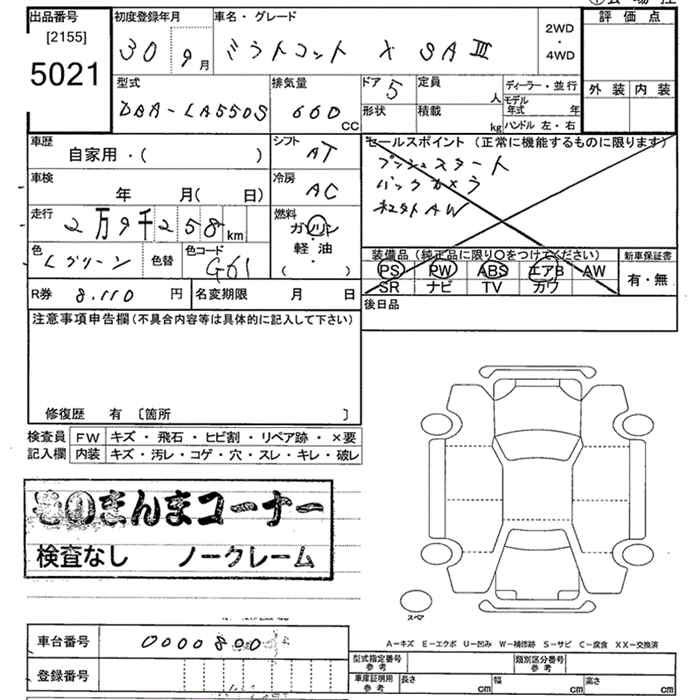 出品番号
[2155]
5021
初度登録年月
30 9月
車名・グレード
ミラトコット X SAⅢ
2WD
・
4WD
評価点
外装 内装
型式
DBA-LA550S
排気量
660 CC
ドア 5
形状
定員 人
積載 kg
ディーラー・並行
モデル年式 年
ハンドル 左・右
車歴
自家用・( )
シフト
AT
車検
年 月( 日)
冷房
AC
走行
2万9千258km
燃料
ガソリン
・
軽・油
( )
色
Lグリーン
色替
色コード
G61
R券 8,110 円
名変期限 月 日
セールスポイント (正常に機能するものに限ります)
プッシュスタート
バックカメラ
社外AW
装備品 (純正品に限り○をつけてください)
PS PW ABS エアB AW
SR ナビ TV カワ
新車保証書
有・無
後日品
注意事項申告欄(不具合内容等は具体的に記入して下さい)
修復歴 有 〔箇所 〕
検査員 FW キズ・飛石・ヒビ割・リペア跡・×要
記入欄 内装 キズ・汚レ・コゲ・穴・スレ・キレ・破レ
そのまんまコーナー
検査なし ノークレーム
スペア
A-キズ E-エクボ U-凹み W-補修跡 S-サビ C-腐食 XX-交換済
車台番号 0000800
登録番号
型式指定番号 参考
類別区分番号 参考
車庫証明用 参考 長さ cm 幅 cm 高さ cm